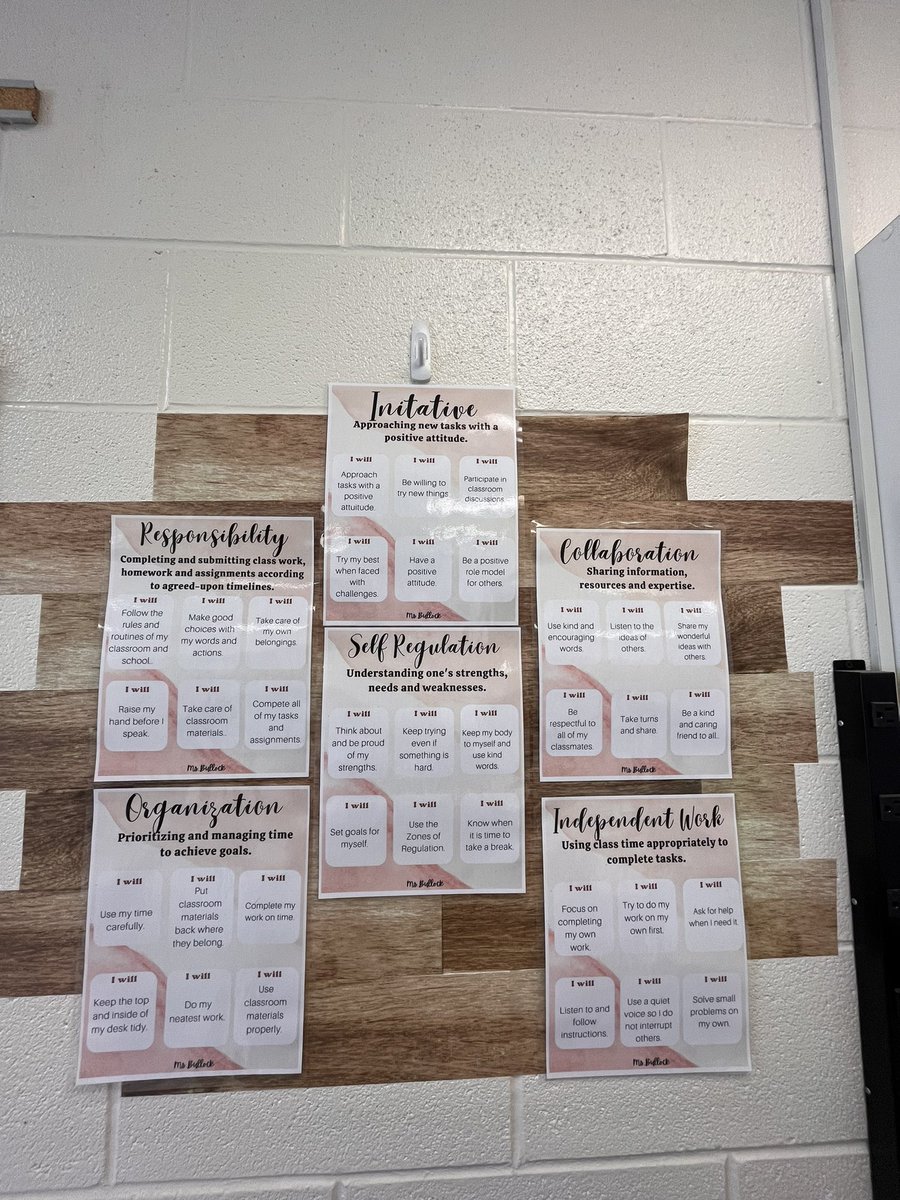 Initative
Approaching new tasks with a
positive attitude.
I will
Approach
tasks with a
positive
attuitude.
I will
Be willing to
try new things
I will
Participate in
classroom
discussions.
I will
Try my best
when faced
with
challenges.
I will
Have a
positive
attitude.
I will
Be a positive
role model
for others.
Ms Bullock
Responsibility
Completing and submitting class work,
homework and assignments according
to agreed-upon timelines.
I will
Follow the
rules and
routines of my
classroom and
school..
I will
Make good
choices with
my words and
actions.
I will
Take care of
my own
belongings.
I will
Raise my
hand before I
speak.
I will
Take care of
classroom
materials..
I will
Compete all
of my tasks
and
assignments.
Ms Bullock
Collaboration
Sharing information,
resources and expertise.
I will
Use kind and
encouraging
words.
I will
Listen to the
ideas of
others.
I will
Share my
wonderful
ideas with
others.
I will
Be
respectful to
all of my
classmates.
I will
Take turns
and share.
I will
Be a kind
and caring
friend to all..
Ms Bullock
Self Regulation
Understanding one's strengths,
needs and weaknesses.
I will
Think about
and be proud
of my
strengths.
I will
Keep trying
even if
something is
hard.
I will
Keep my body
to myself and
use kind
words.
I will
Set goals for
myself.
I will
Use the
Zones of
Regulation.
I will
Know when
it is time to
take a break.
Ms Bullock
Organization
Prioritizing and managing time
to achieve goals.
I will
Use my time
carefully.
I will
Put
classroom
materials
back where
they belong.
I will
Complete my
work on time.
I will
Keep the top
and inside of
my desk tidy.
I will
Do my
neatest work.
I will
Use
classroom
materials
properly.
Ms Bullock
Independent Work
Using class time appropriately to
complete tasks.
I will
Focus on
completing
my own
work.
I will
Try to do my
work on my
own first.
I will
Ask for help
when I need it.
I will
Listen to and
follow
instructions.
I will
Use a quiet
voice so I do
not interrupt
others.
I will
Solve small
problems on
my own.
Ms Bullock